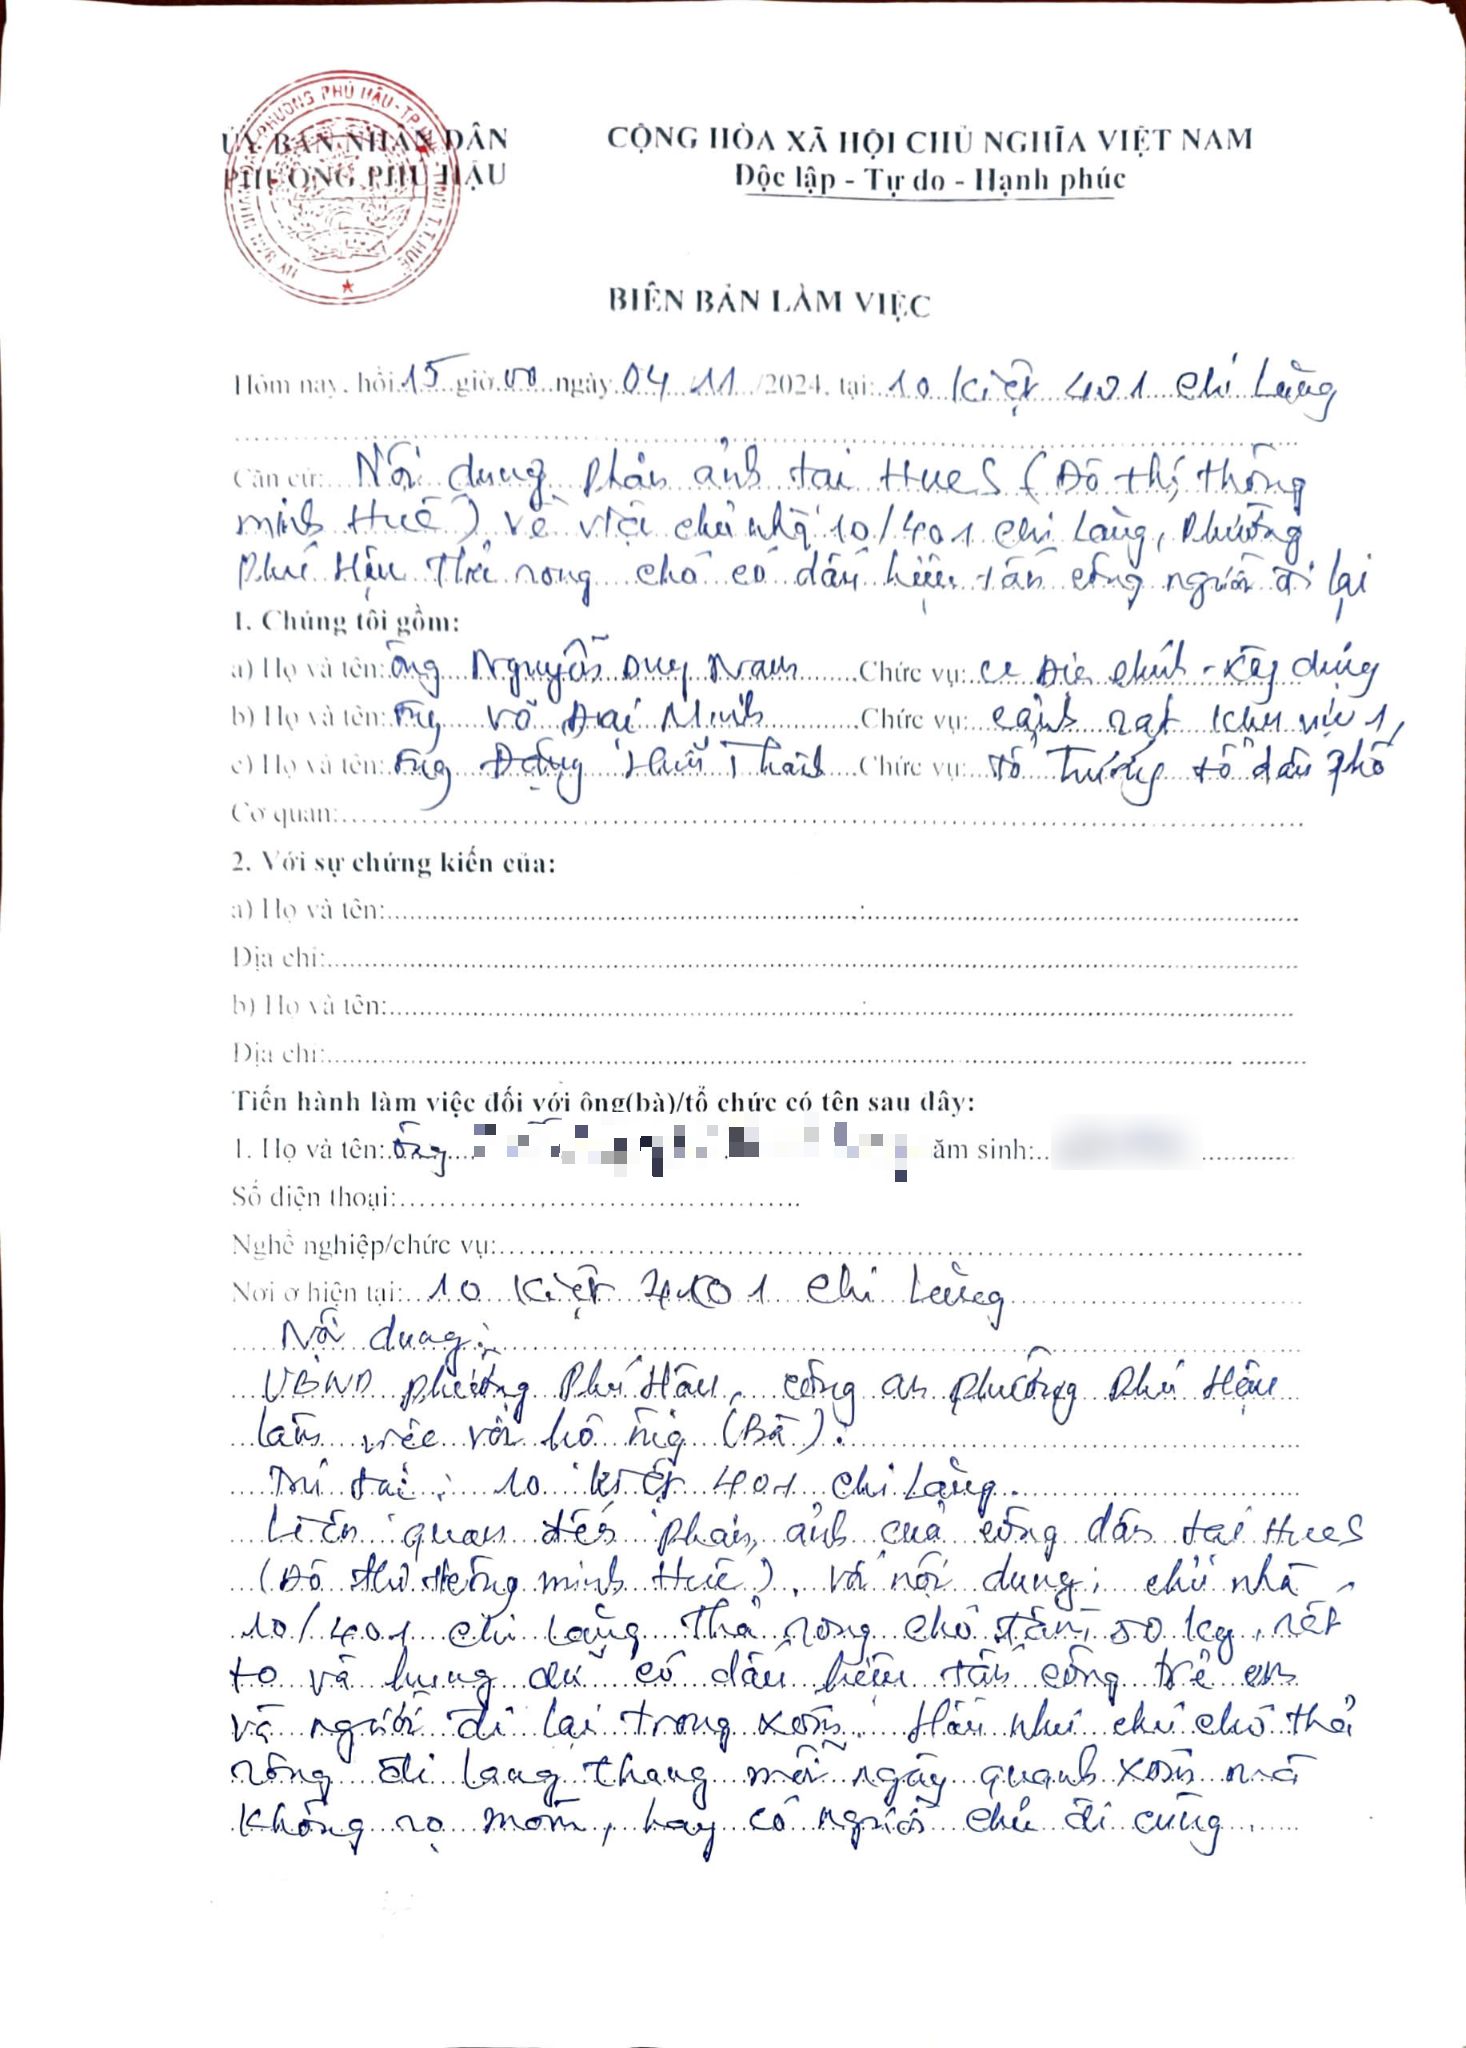 ỦY BAN NHÂN DÂN
PHƯỜNG PHÚ HẬU
CỘNG HÒA XÃ HỘI CHỦ NGHĨA VIỆT NAM
Độc lập - Tự do - Hạnh phúc
BIÊN BẢN LÀM VIỆC
Hôm nay, hồi 15 giờ 00 ngày 04/11/2024, tại: 10 Kiệt 401 Chi Lăng
Căn cứ: Nội dung phản ảnh tại HueS (Đô thị thông
minh Huế) về việc chủ nhà 10/401 Chi Lăng, phường
Phú Hậu thả rong chó có dấu hiệu tấn công người đi lại
1. Chúng tôi gồm:
a) Họ và tên: ông Nguyễn Duy Nam Chức vụ: CC Địa chính - Xây dựng
b) Họ và tên: ông Võ Đại Minh Chức vụ: Cảnh sát khu vực 1,
c) Họ và tên: ông Đặng Hữu Thành Chức vụ: tổ trưởng tổ dân phố
Cơ quan:
2. Với sự chứng kiến của:
a) Họ và tên:
Địa chỉ:
b) Họ và tên:
Địa chỉ:
Tiến hành làm việc đối với ông(bà)/tổ chức có tên sau đây:
1. Họ và tên: ông ăm sinh:
Số điện thoại:
Nghề nghiệp/chức vụ:
Nơi ở hiện tại: 10 Kiệt 401 Chi Lăng
Nội dung:
UBND phường Phú Hậu, công an phường Phú Hậu
làm việc với hộ ông (Bà):
Trú tại: 10 kiệt 401 Chi Lăng.
Liên quan đến phản ảnh của công dân tại HueS
(Đô thị thông minh Huế), về nội dung: chủ nhà
10/401 Chi Lăng thả rong chó tầm 50 kg, rất
to và hung dữ có dấu hiệu tấn công trẻ em
và người đi lại trong xóm. Hầu như chú chó thả
rông đi lang thang mỗi ngày quanh xóm mà
không rọ mõm, hay có người chủ đi cùng.